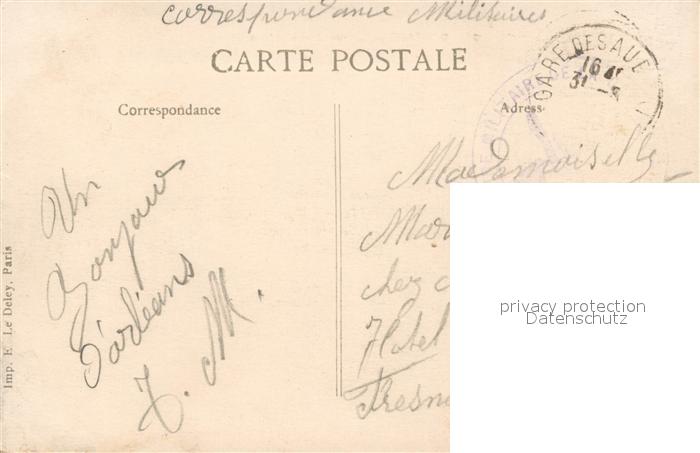 Correspondance Militaires
CARTE POSTALE
Correspondance
Adress
GARE DES AU
16
31
Un
Bonjour
d'orléans
M.
Mademoiselle
Mar
chez
Hotel
Fresn
Imp. E. Le Deley, Paris
privacy protection
Datenschutz